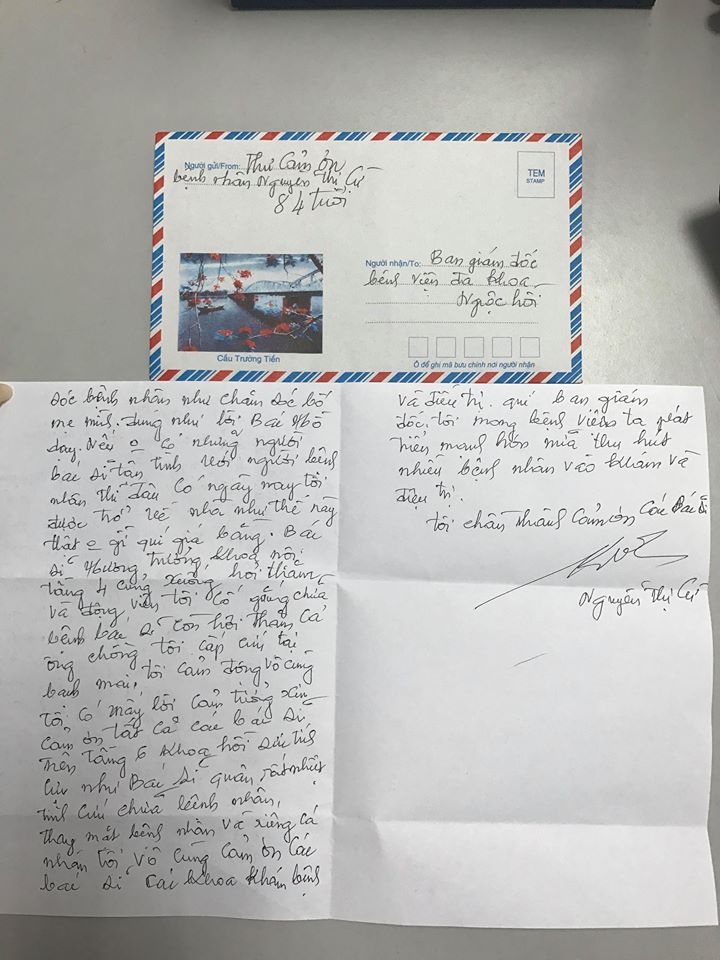 Người gửi/From: Thư Cảm ơn
bệnh nhân Nguyễn Thị Cử
84 tuổi
TEM
STAMP
Người nhận/To: Ban giám đốc
bệnh viện đa khoa
Ngọc hồi
Cầu Trường Tiền
Ô để ghi mã bưu chính nơi người nhận
sóc bệnh nhân như chăm sóc bố
mẹ mình. đúng như lời Bác Hồ
dạy. Nếu o có những người
bác sĩ tận tình với người bệnh
nhân thì đâu có ngày nay tôi
được trở về nhà như thế này
thật o gì quí giá bằng. Bác
sĩ Hương trưởng khoa nội
tầng 4 cũng xuống hỏi thăm
và động viên tôi cố gắng chữa
bệnh bác sĩ còn hỏi thăm cả
ông chồng tôi cấp cứu tại
bạch mai, tôi cảm động vô cùng
tôi có mấy lời cảm tưởng xin
cảm ơn tất cả các bác sĩ
trên tầng 6 khoa hồi sức tích
cực như Bác sĩ quân rất nhiệt
tình cứu chữa bệnh nhân,
thay mặt bệnh nhân và riêng cá
nhân tôi vô cùng cảm ơn các
bác sĩ các khoa khám bệnh
và điều trị. quí ban giám
đốc. tôi mong bệnh viện ta phát
triển mạnh hơn nữa thu hút
nhiều bệnh nhân vào khám và
điệu trị.
tôi chân thành cảm ơn các Bác sĩ
Nguyễn Thị Cử